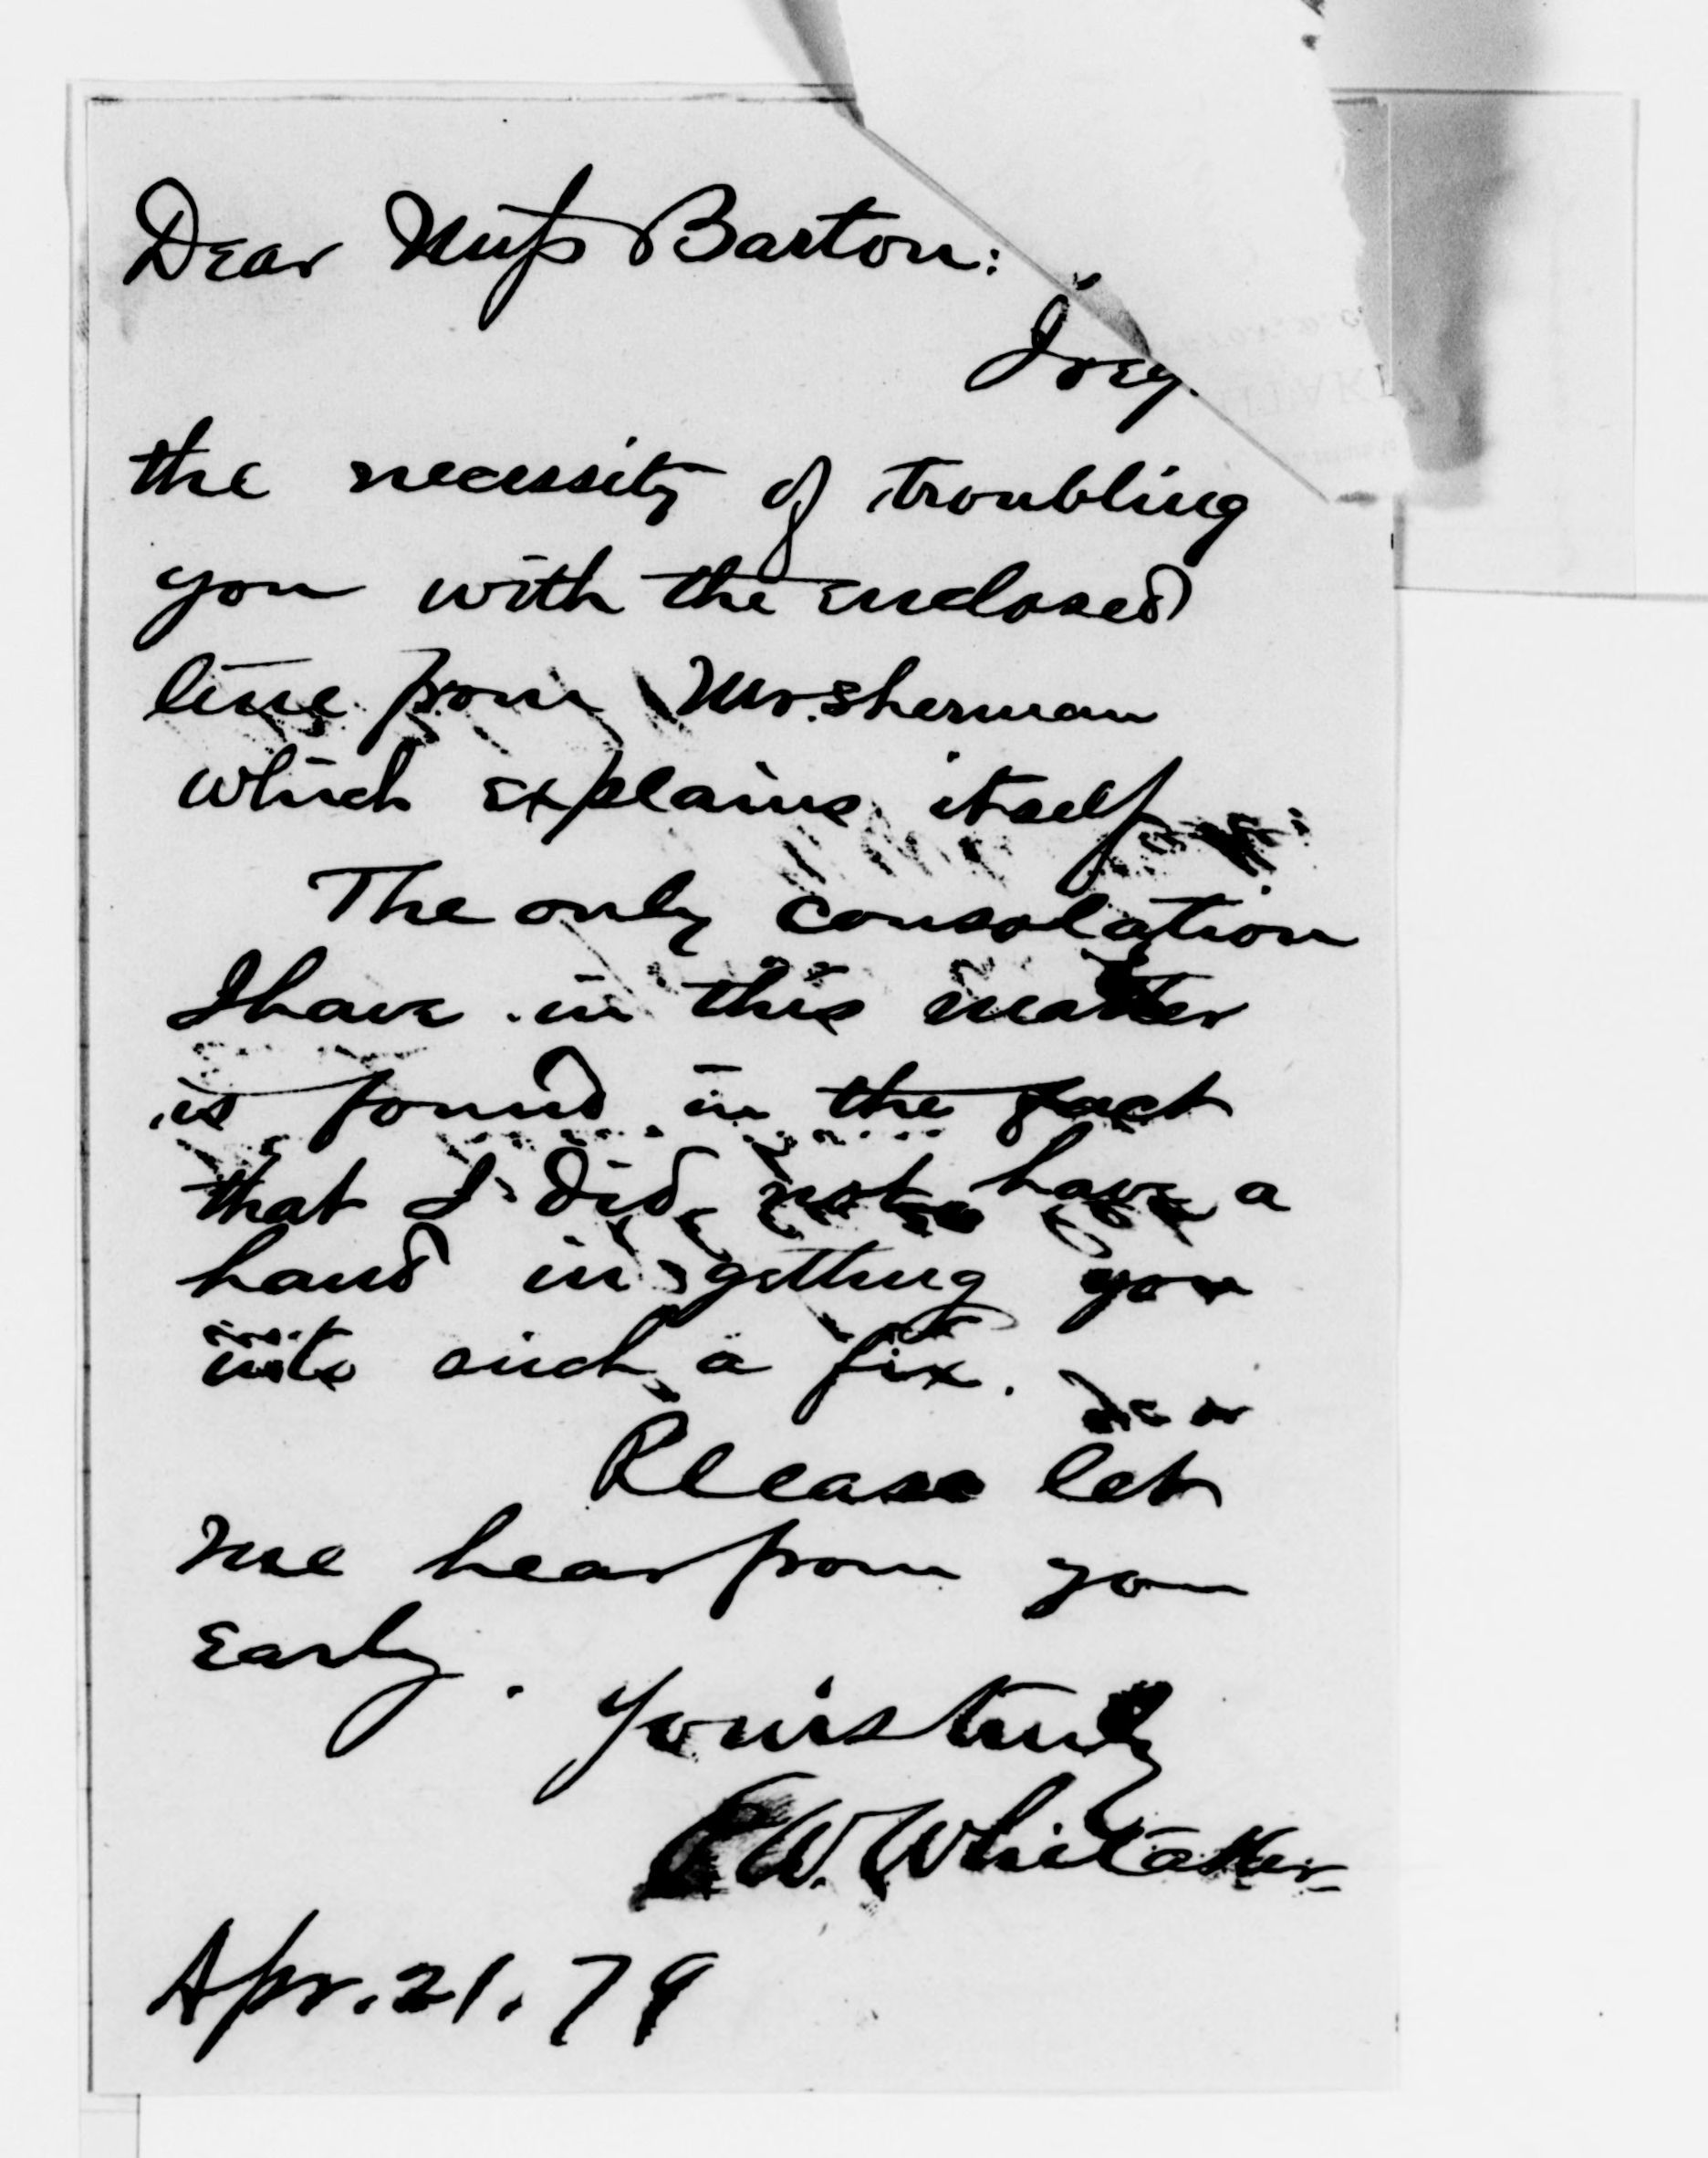 Dear Miss Barton:
I reg
the necessity of troubling
you with the enclosed
line from Mr. Sherman
which explains itself
The only consolation
I have in this matter
is found in the fact
that I did not have a
hand in getting you
into such a fix.
Please let
me hear from you
Early.
Yours truly
W. Whitaker
Apr. 21. 79